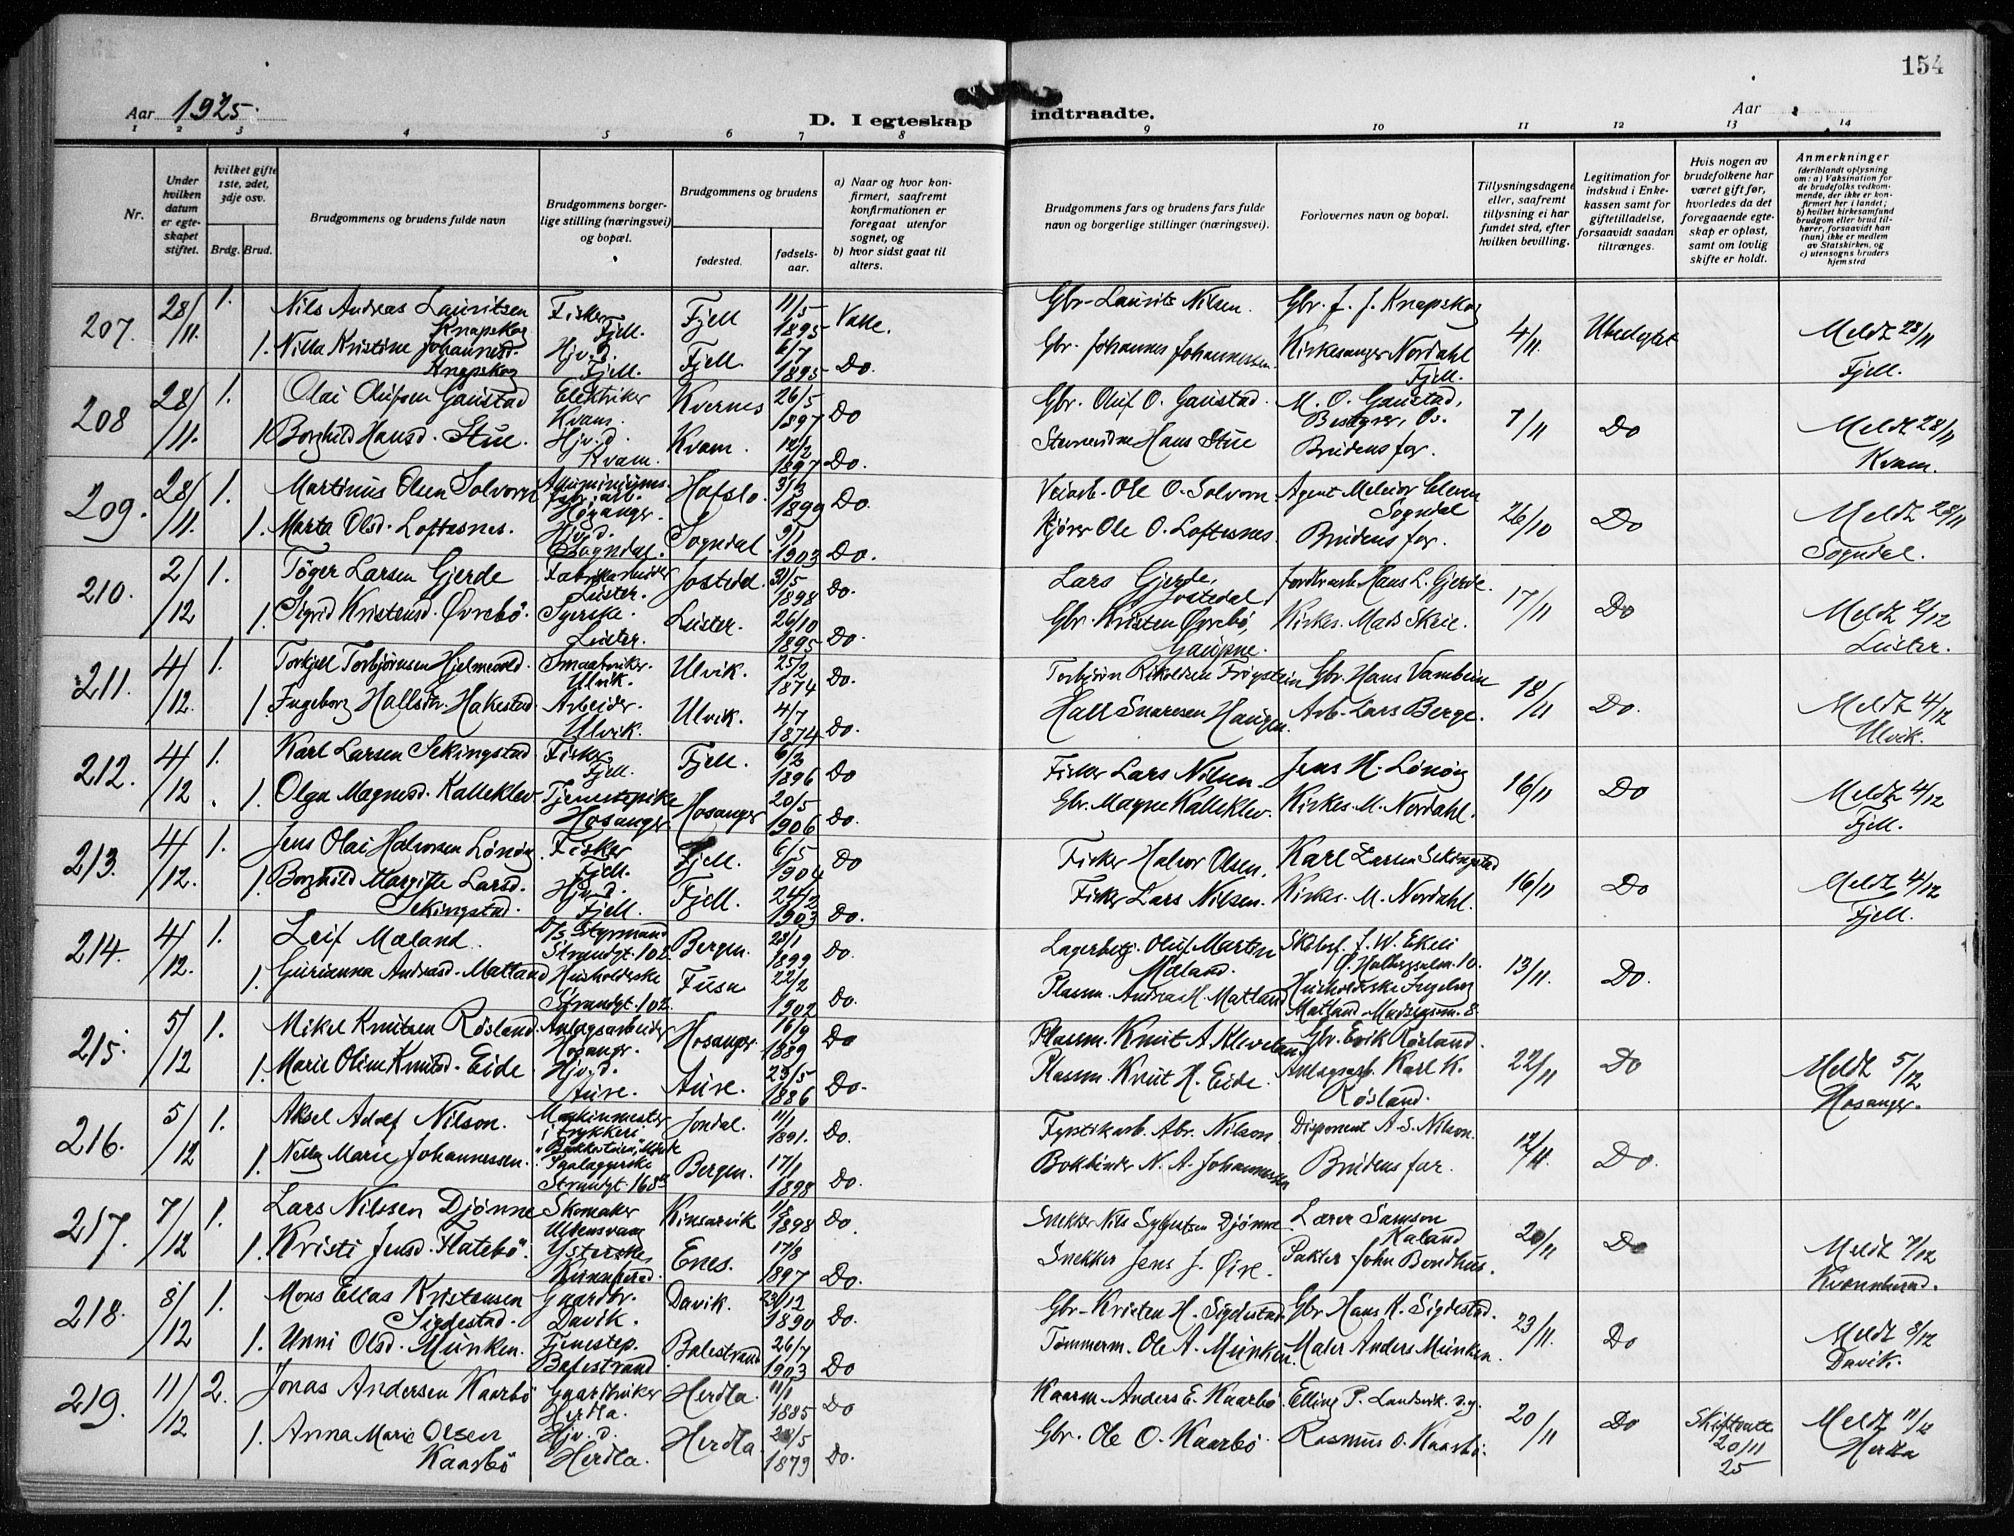 154
Aar 1925.
D. I egteskap indtraadte.
Aar
1 2 3 4 5 6 7 8 9 10 11 12 13 14
Nr.
Under hvilken datum er egteskapet stiftet.
hvilket gifte 1ste, 2det, 3dje osv.
Brdg. Brud.
Brudgommens og brudens fulde navn
Brudgommens borgerlige stilling (næringsvei) og bopæl.
Brudgommens og brudens
fødested.
fødselsaar.
a) Naar og hvor konfirmert, saafremt konfirmationen er foregaat utenfor sognet, og
b) hvor sidst gaat til alters.
Brudgommens fars og brudens fars fulde navn og borgerlige stillinger (næringsvei).
Forlovernes navn og bopæl.
Tillysningsdagene eller, saafremt tillysning ei har fundet sted, efter hvilken bevilling.
Legitimation for indskud i Enkekassen samt for giftetilladelse, forsaavidt saadan tiltrænges.
Hvis nogen av brudefolkene har været gift før, hvorledes da det foregaaende egteskap er opløst, samt om lovlig skifte er holdt.
Anmerkninger (deriblandt oplysning om: a) Vaksination for de brudefolks vedkommende, der ikke er konfirmert her i landet; b) hvilket kirkesamfund brudgom eller brud tilhører, forsaavidt han (hun) ikke er medlem av Statskirken, og c) utensogns bruders hjemsted
207. 28/11. 1. Nils Andreas Lauritsen Knapskog Fisker Fjell. Fjell 11/5 1895 Valle. Gbr. Laurits Nilsen. Gbr. J. J. Knapskog 4/11. Ubesluttet Meldt 28/11 Fjell.
1. Nilla Kristine Johannesd. Knapskog Hjv.d. Fjell. Fjell 6/7 1895 Do. Gbr. Johannes Johannessen. Kirkesanger Nordahl Fjell.
208 28/11. 1. Olai Olufsen Gaustad Elektriker Kvam. Kvernes 26/5 1897 Do Gbr. Oluf O. Gaustad. M. O. Gaustad, Bestyrer, Os. 7/11 Do Meldt 28/11 Kvam.
1. Borghild Hansd. Stue. Hjv.d. Kvam. Kvam. 12/2 1897 Do. Hans Stue Brudens far.
209. 28/11. 1. Martinus Olsen Solvorn Høyanger. Hafslo 3/3 1899 Do. Veiarb. Ole O. Solvorn. Agent Sogndal 26/10 Do Meldt 28/11 Sogndal.
1. Marta Olsd. Loftesnes. Hjv.d. Sogndal. Sogndal 9/1 1903 Do. Kjører Ole O. Loftesnes. Brudens far.
210. 2/12 1. Tøger Larsen Gjerde Fabrikarbeider Luster. Jostedal. 31/5 1898 Do. Lars Gjerde, Jostedal. Hans L. Gjerde. 17/11 Do Meldt 2/12 Luster.
1. Sigrid Kristensd. Øvrebø. Syerske. Luster. Luster. 26/10 1895 Do. Gbr. Kristen Øvrebø, Gaupne. Kirkes. Mads Skrie.
211. 4/12. 1. Torkjell Torbjørnsen Hjelmevold. Smaabruker. Ulvik. Ulvik. 25/2 1874 Do. Torbjørn Gbr. Hans Vambeim 18/11 Do. Meldt 4/12 Ulvik.
1. Ingeborg Hallsdtr. Hakestad. Arbeider. Ulvik. Ulvik. 4/7 1874 Do. Hall Snaresen Haugen. Arb. Lars Berge.
212. 4/12 1. Karl Larsen Sekingstad Fisker Fjell. Fjell. 6/3 1896 Do Fisker Lars Nilsen. Jens H. Lønøy 16/11 Do Meldt 4/12 Fjell.
1. Olga Magnesd. Kalleklev. Tjenestepike Hosanger. Hosanger 20/5 1906 Do. Gbr. Magne Kalleklev. Kirkes. M. Nordahl.
213. 4/12. 1. Jens Olai Halvorsen Lønøy Fisker Fjell. Fjell. 6/5 1904 Do Fisker Halvor Olsen. Karl Larsen Sekingstad 16/11 Do Meldt 4/12 Fjell.
1. Borghild Margithe Larsd. Sekingstad. Hjv.d. Fjell. Fjell. 24/2 1903 Do. Fisker Lars Nilsen. Kirkes. M. Nordahl.
214. 4/12. 1. Leif Mæland D/S Styrmand Strandgt. 102. Bergen. 23/1 1899 Do. Lagerbetj. Oluf Martin Mæland. J. W. Ekeli Ø. Holbergsalm. 10. 13/11. Do.
1. Gurianna Andreasd. Matland Husholderske Strandgt. 102. Fusa 22/2 1902 Do. Plassm. Andreas H. Matland Husholderske Ingeborg Matland
215. 5/12 1. Mikel Knutsen Røsland. Anlægsarbeider Hosangr. Hosangr. 16/9 1889 Do Plassm. Knut A. Kleveland Gbr. Erik Røsland. 22/11 Do Meldt 5/12 Hosanger.
1. Marie Oline Knutsd. Eide Hjv.d. Aure. Aure. 23/5 1886 Do. Plassm. Knut H. Eide. Anlægsarb. Karl K. Røsland.
216. 5/12 1. Aksel Adolf Nilson. Maskinmester i trykkeri Jondal. 11/1 1891. Do. Fyrstikarb. Abr. Nilson. Disponent A. S. Nilson. 12/11. Do.
1. Nelly Marie Johannessen. Paalæggerske Strandgt. 168 Bergen. 17/1 1898 Do. Bokbinder N. A. Johannessen Brudens far.
217. 7/12 1. Lars Nilssen Djønne Skomaker Ullensvang Kinsarvik 1/8 1898 Do. Snekker Nils Djønne Lærer Samson Kaland 20/11 Do Meldt 7/12 Kvannherad.
1. Kristi Jensd. Flatebø. Kvannherad. Enes. 17/8 1897 Do. Snekker Jens J. Øire. Pakker John Bondhus.
218. 8/12 1. Mons Elias Kristensen Sigdestad. Gaardbr. Davik. Davik. 23/12 1890 Do. Gbr. Kristen H. Sigdestad. Gbr. Hans K. Sigdestad. 23/11. Do Meldt 8/12 Davik.
1. Unni Olsd. Munken. Tjenestep. Balestrand Balestrand 26/7 1903 Do Tømmerm. Ole A. Munken. Maler Anders Munken.
219. 11/12 2. Jonas Andersen Kaarbø Gaardbruker Herdla. Herdla. 11/1 1885 Do Kaarm. Anders E. Kaarbø. Elling P. Landsvik. 20/11 Do Skifteatt 20/11 25 Meldt 11/12 Herdla
1. Anna Marie Olsen Kaarbø Hjv.d. Herdla. Herdla. 1879 Do. Gbr. Ole O. Kaarbø. Rasmus O. Kaarbø.